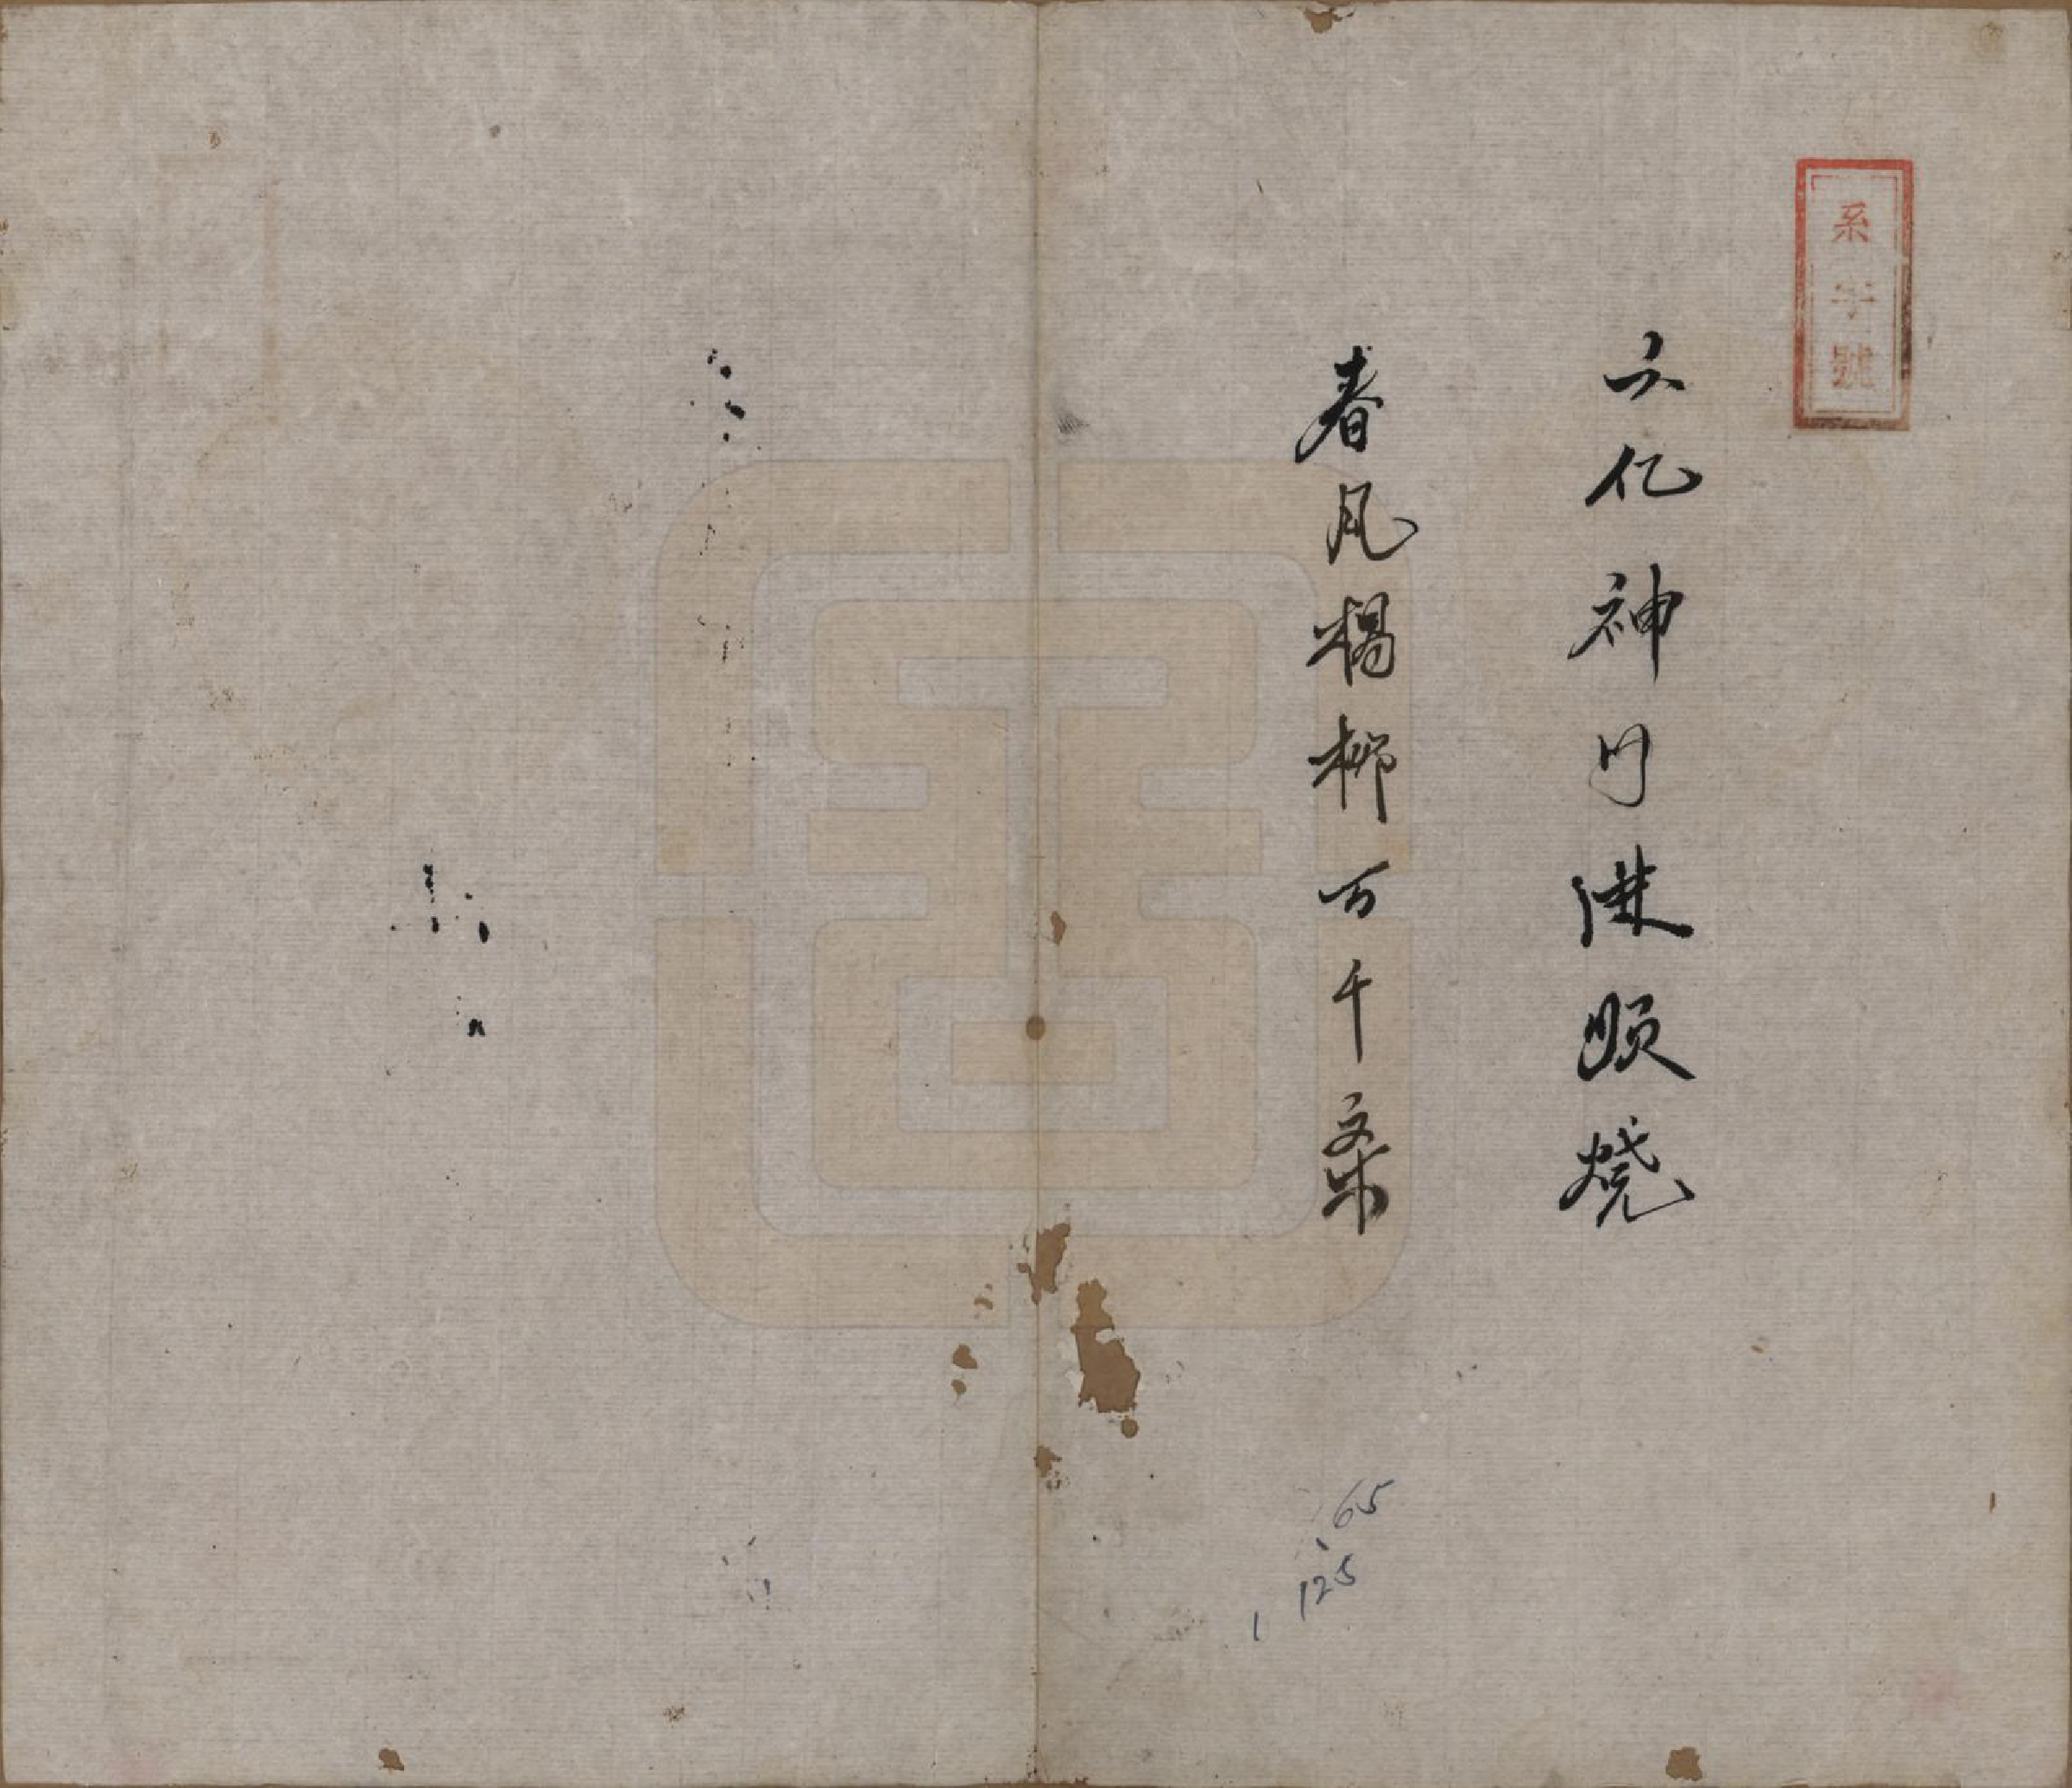 系字號
六亿神州进顺烧
春风楊柳万千条
65
125
1